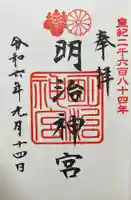 皇紀二千六百八十四年
奉拝
明治神宮
令和六年九月十四日